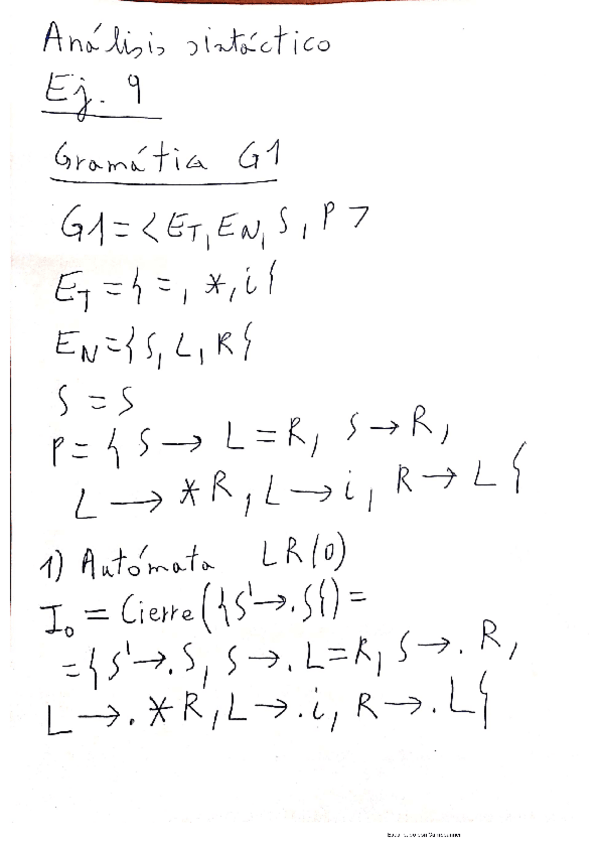 Análisis sintáctico
Ej. 9
Gramátia G1
G1 = < ET, EN, S, P >
ET = { =, *, i }
EN = { S, L, R }
S = S
P = { S → L = R, S → R,
L → * R, L → i, R → L }
1) Autómata LR(0)
I0 = Cierre({S' → .S}) =
= { S' → .S, S → .L=R, S → .R,
L → .*R, L → .i, R → .L }